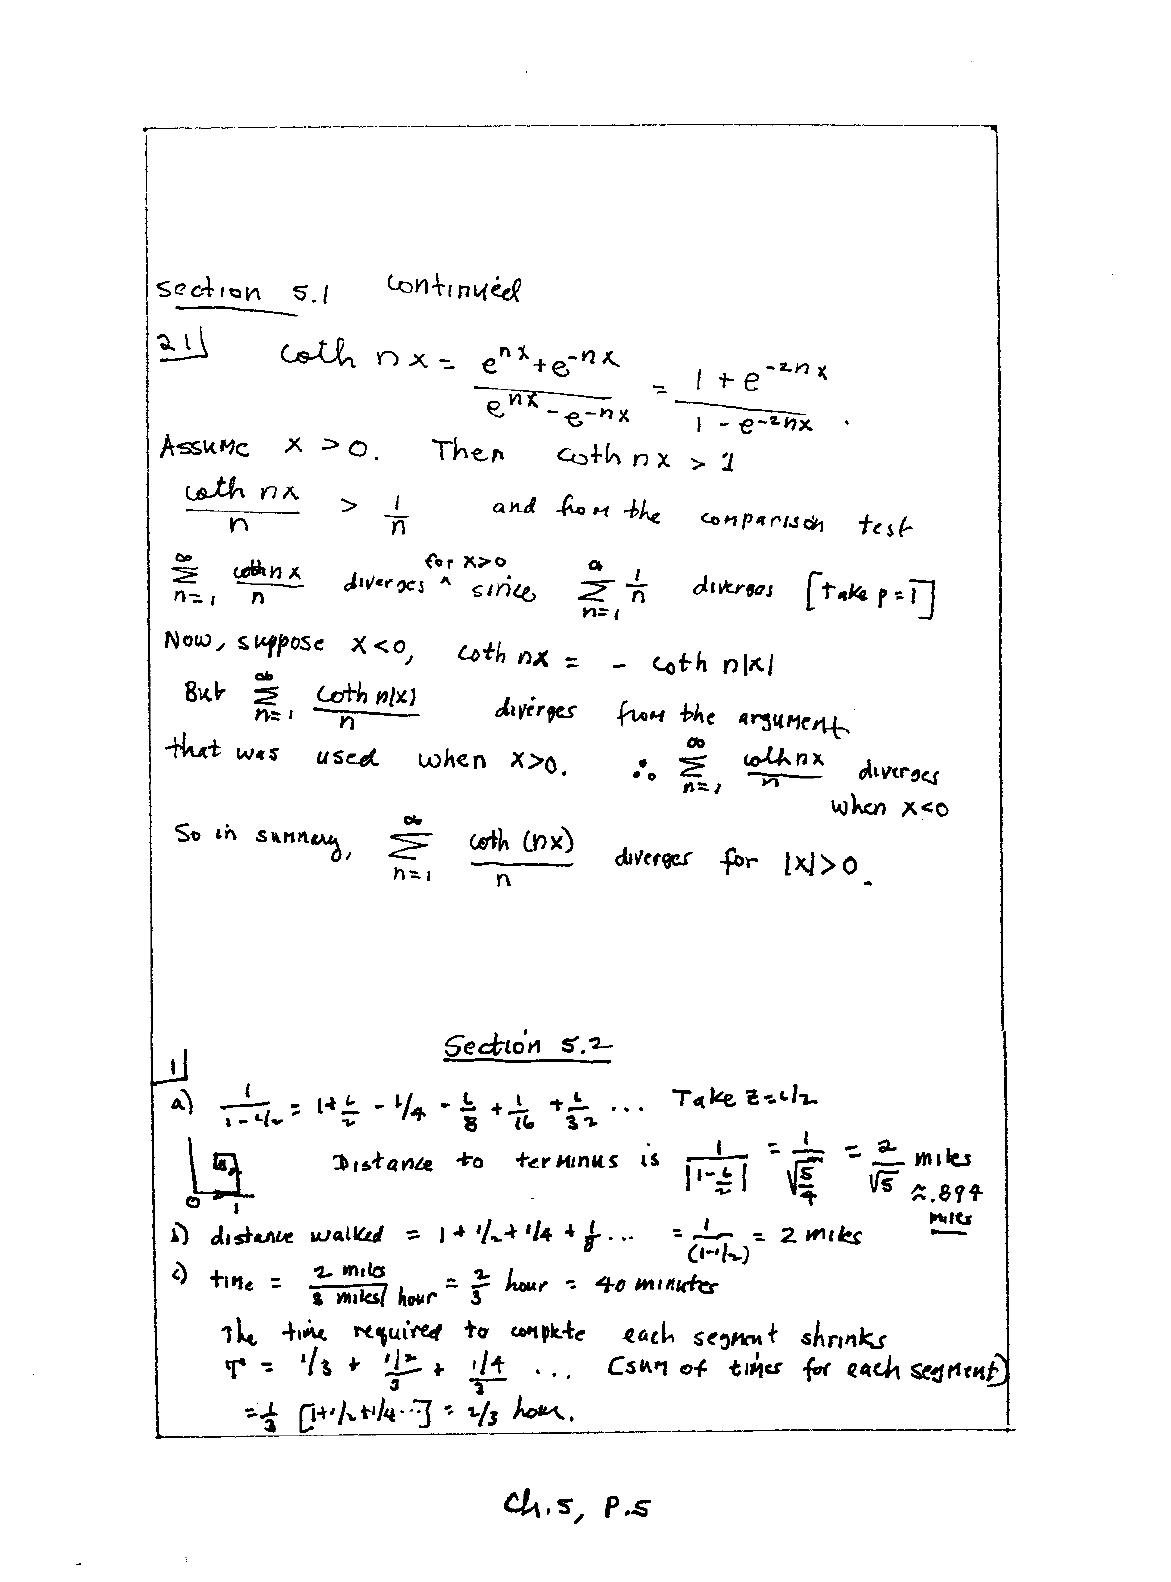 Section 5.1 continued
21) coth nx = (e^{nx} + e^{-nx}) / (e^{nx} - e^{-nx}) = (1 + e^{-2nx}) / (1 - e^{-2nx}) .
Assume x > 0. Then coth nx > 1
coth nx / n > 1/n and from the comparison test
∑_{n=1}^{∞} coth nx / n diverges ^ for x>0 since ∑_{n=1}^{∞} 1/n diverges [take p = 1]
Now, suppose x<0, coth nx = - coth n|x|
But ∑_{n=1}^{∞} coth n|x| / n diverges from the argument
that was used when x>0. ∴ ∑_{n=1}^{∞} coth nx / n diverges
when x<0
So in summary, ∑_{n=1}^{∞} coth (nx) / n diverges for |x|>0.
Section 5.2
1)
a) 1/(1 - i/2) = 1 + i/2 - 1/4 - i/8 + 1/16 + i/32 ... Take z = i/2
Distance to terminus is 1/|1 - i/2| = 1/√(5/4) = 2/√5 miles
≈ .894
miles
0 1
b) distance walked = 1 + 1/2 + 1/4 + 1/8 ... = 1/(1-1/2) = 2 miles
c) time = 2 miles / 3 miles/hour = 2/3 hour = 40 minutes
The time required to complete each segment shrinks
T = 1/3 + (1/2)/3 + (1/4)/3 ... (sum of times for each segment)
= 1/3 [1+1/2+1/4...] = 2/3 hour.
Ch. 5, P.5